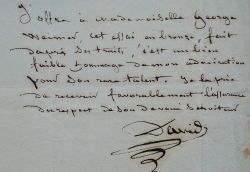 J'offre à Mademoiselle George
Weimer, cet essai en bronze, fait
d'après ses traits, c'est un bien
faible hommage de mon admiration
pour son rare talent. Je la prie
de recevoir favorablement l'assurance
du respect de son dévoué serviteur
David